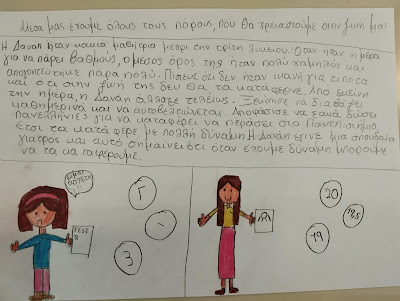 Μέσα μας έχουμε όλους τους πόρους, που θα χρειαστούμε στην ζωή μας
Η Δανάη ήταν κακιά μαθήτρια μέχρι την τρίτη λυκείου. Όταν ήταν η μέρα
για να πάρει βαθμούς, ο μέσος όρος της ήταν πολύ χαμηλός και
απογοητεύτηκε πάρα πολύ. Πίστευε ότι δεν ήταν ικανή για τίποτα
και ότι στην ζωή της δεν θα τα κατάφερνε. Από εκείνη
την ημέρα η Δανάη άλλαξε τελείως. Ξεκίνησε να διαβάζει
καθημερινά και να αυτοβελτιώνεται. Αποφάσισε να ξανά δώσει
πανελλήνιες για να καταφέρει να περάσει στο Πανεπιστήμιο.
Έτσι τα κατάφερε με πολλή δύναμη. Η Δανάη έγινε μια σπουδαία
γιατρός και αυτό σημαίνει ότι όταν έχουμε δύναμη μπορούμε
να τα καταφέρουμε.
ΤΕΣΤ
2
Γ
1
3
20
19,5
19